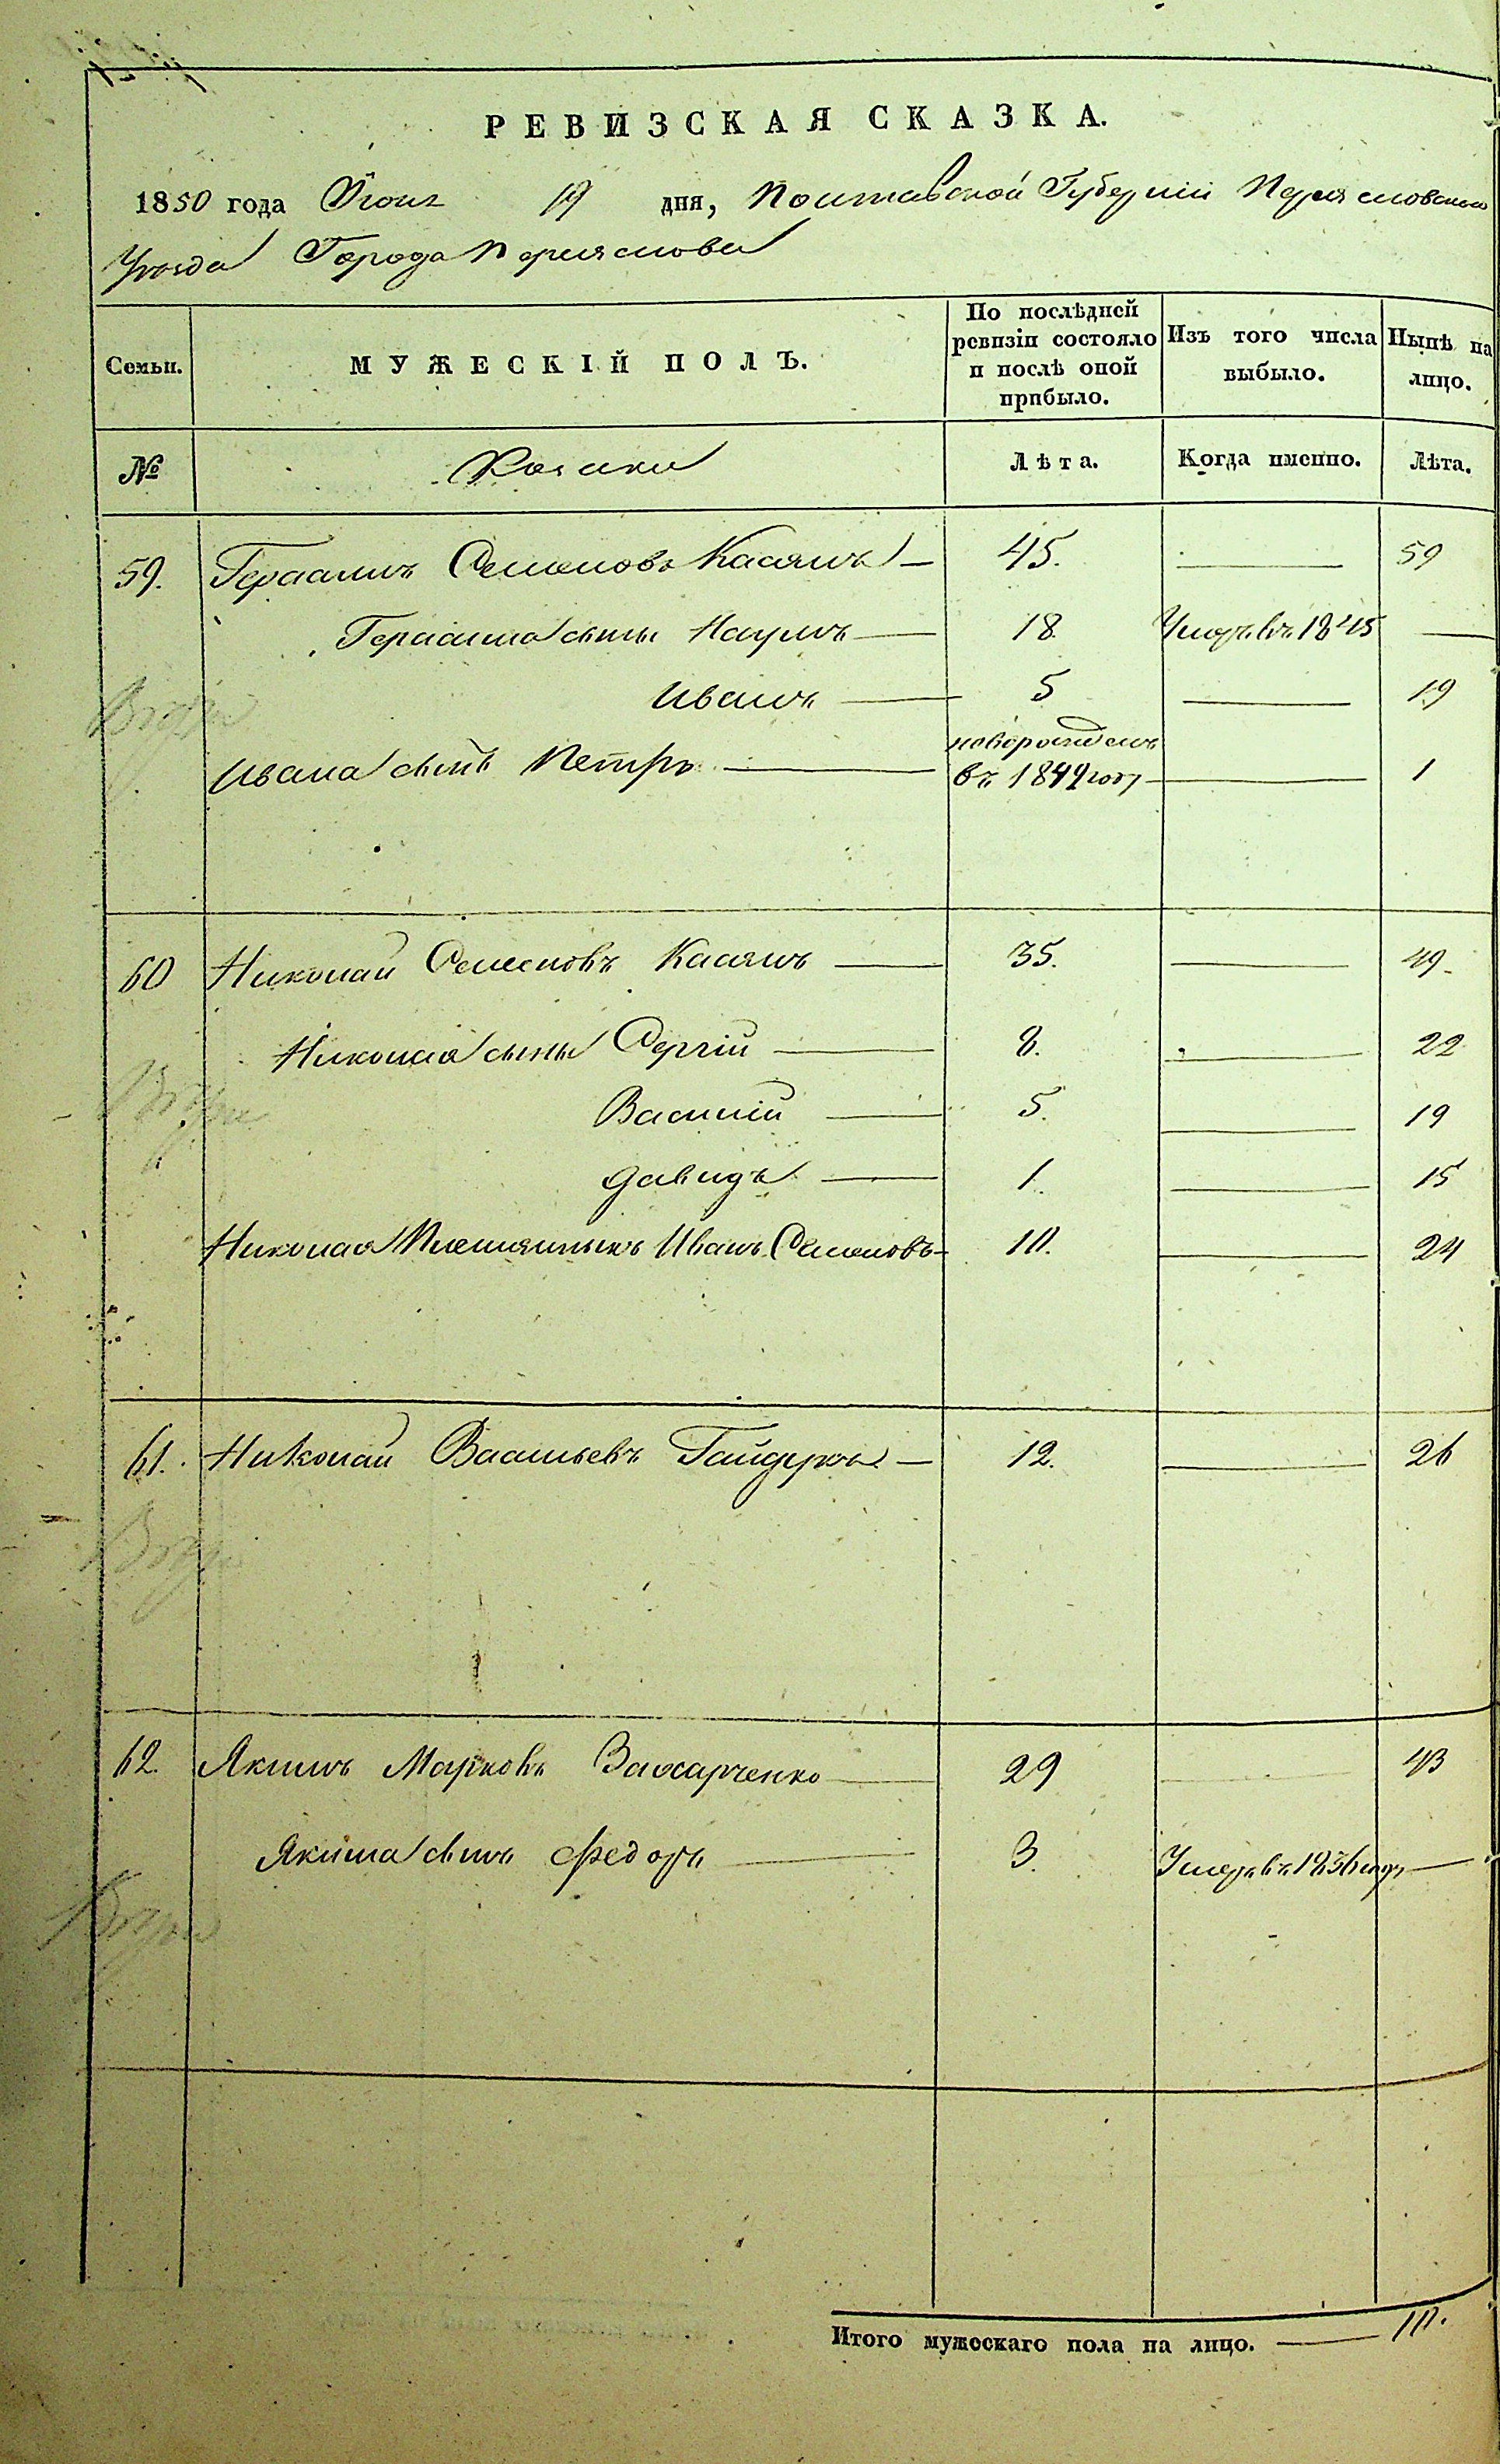 РЕВИЗСКАЯ СКАЗКА.
1850 года Июня 19 дня, Полтавской Губерніи Переяславскаго
Уѣзда Города Переяслова
Семьи. МУЖЕСКІЙ ПОЛЪ. По послѣдней ревизіи состояло и послѣ оной прибыло. Изъ того числа выбыло. Нынѣ на лицо.
№ Козаки Лѣта. Когда именно. Лѣта.
59. Герасимъ Семеновъ Касянъ — 45. — 59
Герасима сыны Наумъ — 18. Умеръ въ 1845 —
Иванъ — 5 — 19
Ивана сынъ Петръ — новорожденъ въ 1849 году — 1
60 Николай Семеновъ Касянъ — 35. — 49.
Николая сыны Сергій — 8. — 22
Василій — 5. — 19
Давидъ — 1. — 15
Николая Племянникъ Иванъ Семеновъ — 10. — 24
61. Николай Васильевъ Гайдука — 12. — 26
62. Якимъ Марковъ Захарченко — 29 — 43
Якима сынъ Федоръ — 3. Умеръ въ 1836 году —
Итого мужескаго пола на лицо. — 10.